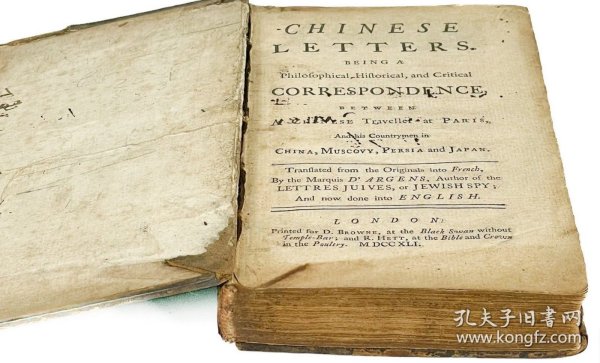 CHINESE
LETTERS.
BEING A
Philosophical, Historical, and Critical
CORRESPONDENCE,
BETWEEN
Traveller at PARIS,
And his Countrymen in
CHINA, MUSCOVY, PERSIA and JAPAN.
Translated from the Originals into French,
By the Marquis D'ARGENS, Author of the
LETTRES JUIVES, or JEWISH SPY;
And now done into ENGLISH.
LONDON:
Printed for D. BROWNE, at the Black Swan without
Temple-Bar; and R. HETT, at the Bible and Crown
in the Poultry. MDCCXLI.
孔夫子旧书网
www.kongfz.com